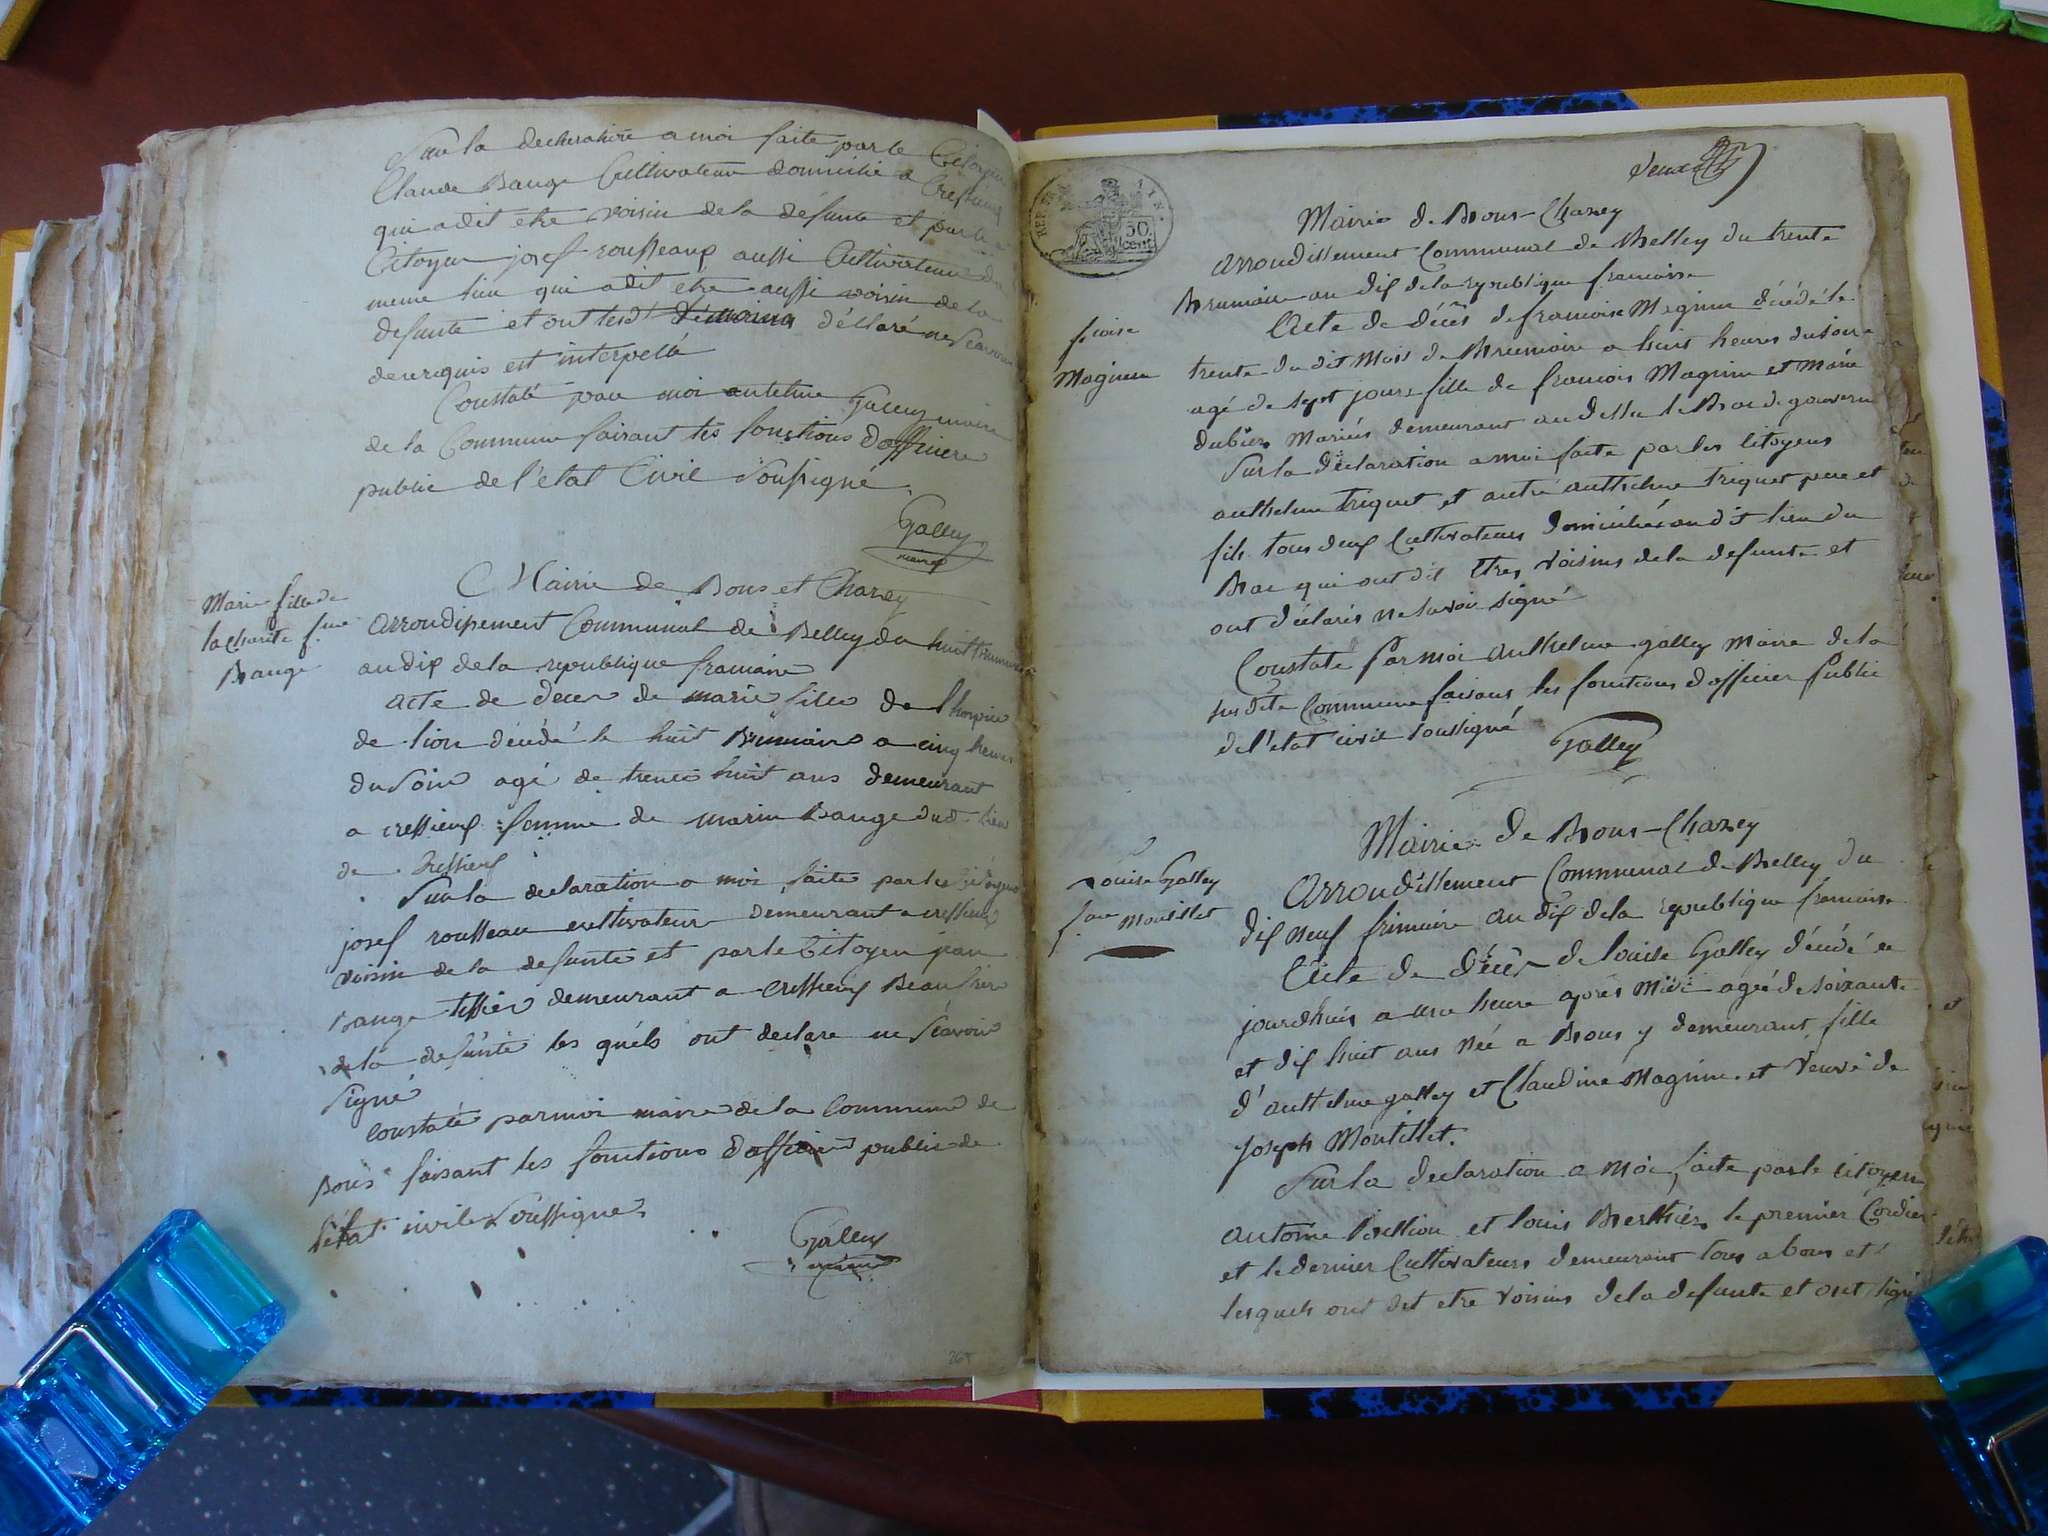 Sur la declaration a moi faite par le Citoyen
Claude Bauge Cultivateur domicilié a Cressieux
qui a dit etre voisin de la defunte et par le
Citoyen josef rousseaux aussi Cultivateur du
meme lieu qui a dit etre aussi voisin de la
defunte et ont lesd témoins déllaré ne Scavoir
de ce requis est interpellé
Constaté par moi antelme Galley maire
de la Commune faisant les fonctions d'officiere
public de l'état Civil Soussigné
Galley
maire
Marie fille de
la charité fme
Bauge
Mairie de Bons et Chazey
arrondissement Communal de Belley du huit frimaire
an dix de la republique francaise
acte de deces de marie fille de lhospice
de lion décédé le huit Brumaire a cinq heures
du Soir agé de trente huit ans demeurant
a cressieux femme de marin Bauge dud. lieu
de Cressieux
Sur la declaration a moi faite par le Citoyens
josef rousseau cultivateur demeurant a cressieux
voisin de la defunte et par le Citoyen jean
Bauge tissier demeurant a cressieux Beau frer
de la defunte les quels ont declare ne Scavoir
Signé
Constaté par moi maire de la Commune de
Bons faisant les fonctions d'officier public de
l'état civile Soussigné
Galley
maire
REP. FRA.
50.
cent.
deux
Mairie de Bons-Chazey
arrondissement Communal de Belley du trente
Brumaire an dix de la republique francaise
fcoise
Magnin
Acte de décès de francoise Magnin décédé le
trente du dit Mois de Brumaire a huit heures du soir
agé de sept jours fille de francois Magnin et Marie
dubier Mariés demeurant au dessu le Brac de gouvern
Sur la déclaration a moi faite par les Citoyens
anthelme triquet et autre anthelme triquet pere et
fils tous deux Cultivateurs domiciliés au dit lieu du
Brac qui ont dit etres voisins de la defunte et
ont déclarés ne Savoir Signé
Constaté Par Moi Anthelme galley Maire de la
sus dite Commune faisant les fonctions d'officier Public
de l'etat civil soussigné
Galley
Mairie de Bons-Chazey
Louise Galley
fme Montillet
Arrondissement Communal de Belley du
dix neuf frimaire an dix de la republique francaise
Acte de Décès de louise Galley décédé ce
jourdhuis a une heure après Midi agé de soixante
et dix huit ans née a Bons y demeurant, fille
d'anthelme galley et Claudine Magnin et veuve de
Joseph Montillet.
Sur la declaration a Moi faite par le citoyen
antoine et louis Berthier le premier Cordier
et le dernier Cultivateurs demeurant tous a bons et
lesquels ont dit etre voisins de la defunte et ont signé